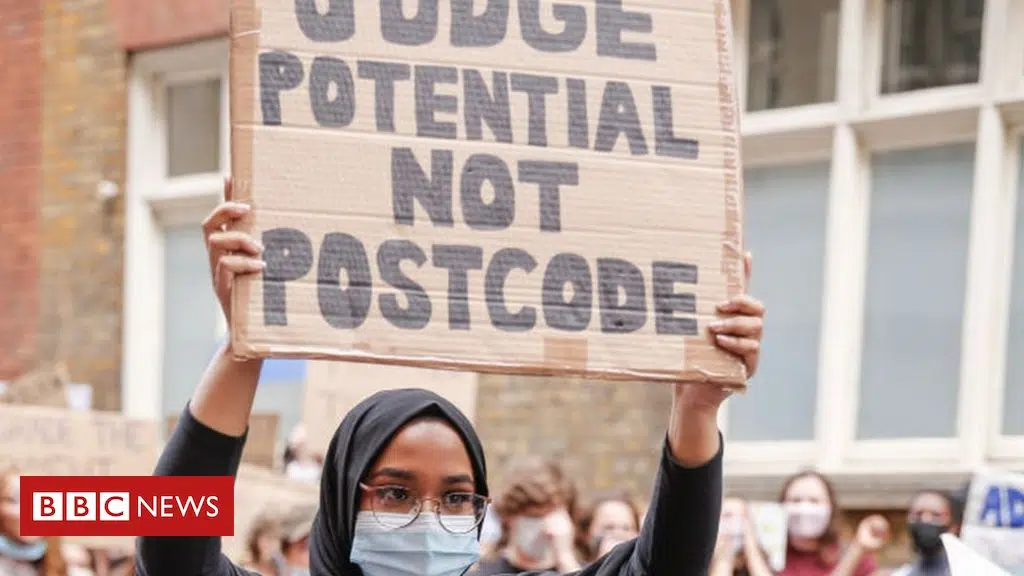 JUDGE
POTENTIAL
NOT
POSTCODE
THE
BBC NEWS